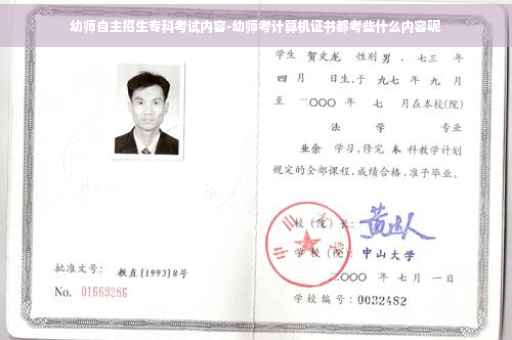 幼师自主招生专科考试内容-幼师考计算机证书都考些什么内容呢
学生 贺文龙 性别 男 、七三 年
四 月 日生,于 九七 年 九 月
至 二〇〇〇 年 七 月在本校(院)
法 学 专业
业余 学习,修完 本 科教学计划
规定的全部课程,成绩合格,准予毕业。
校(院)长:
学 校(院): 中山大学
二〇〇〇 年 七 月 一 日
学校编号: 0032482
批准文号: 教直[1993]8号
No. 01669286